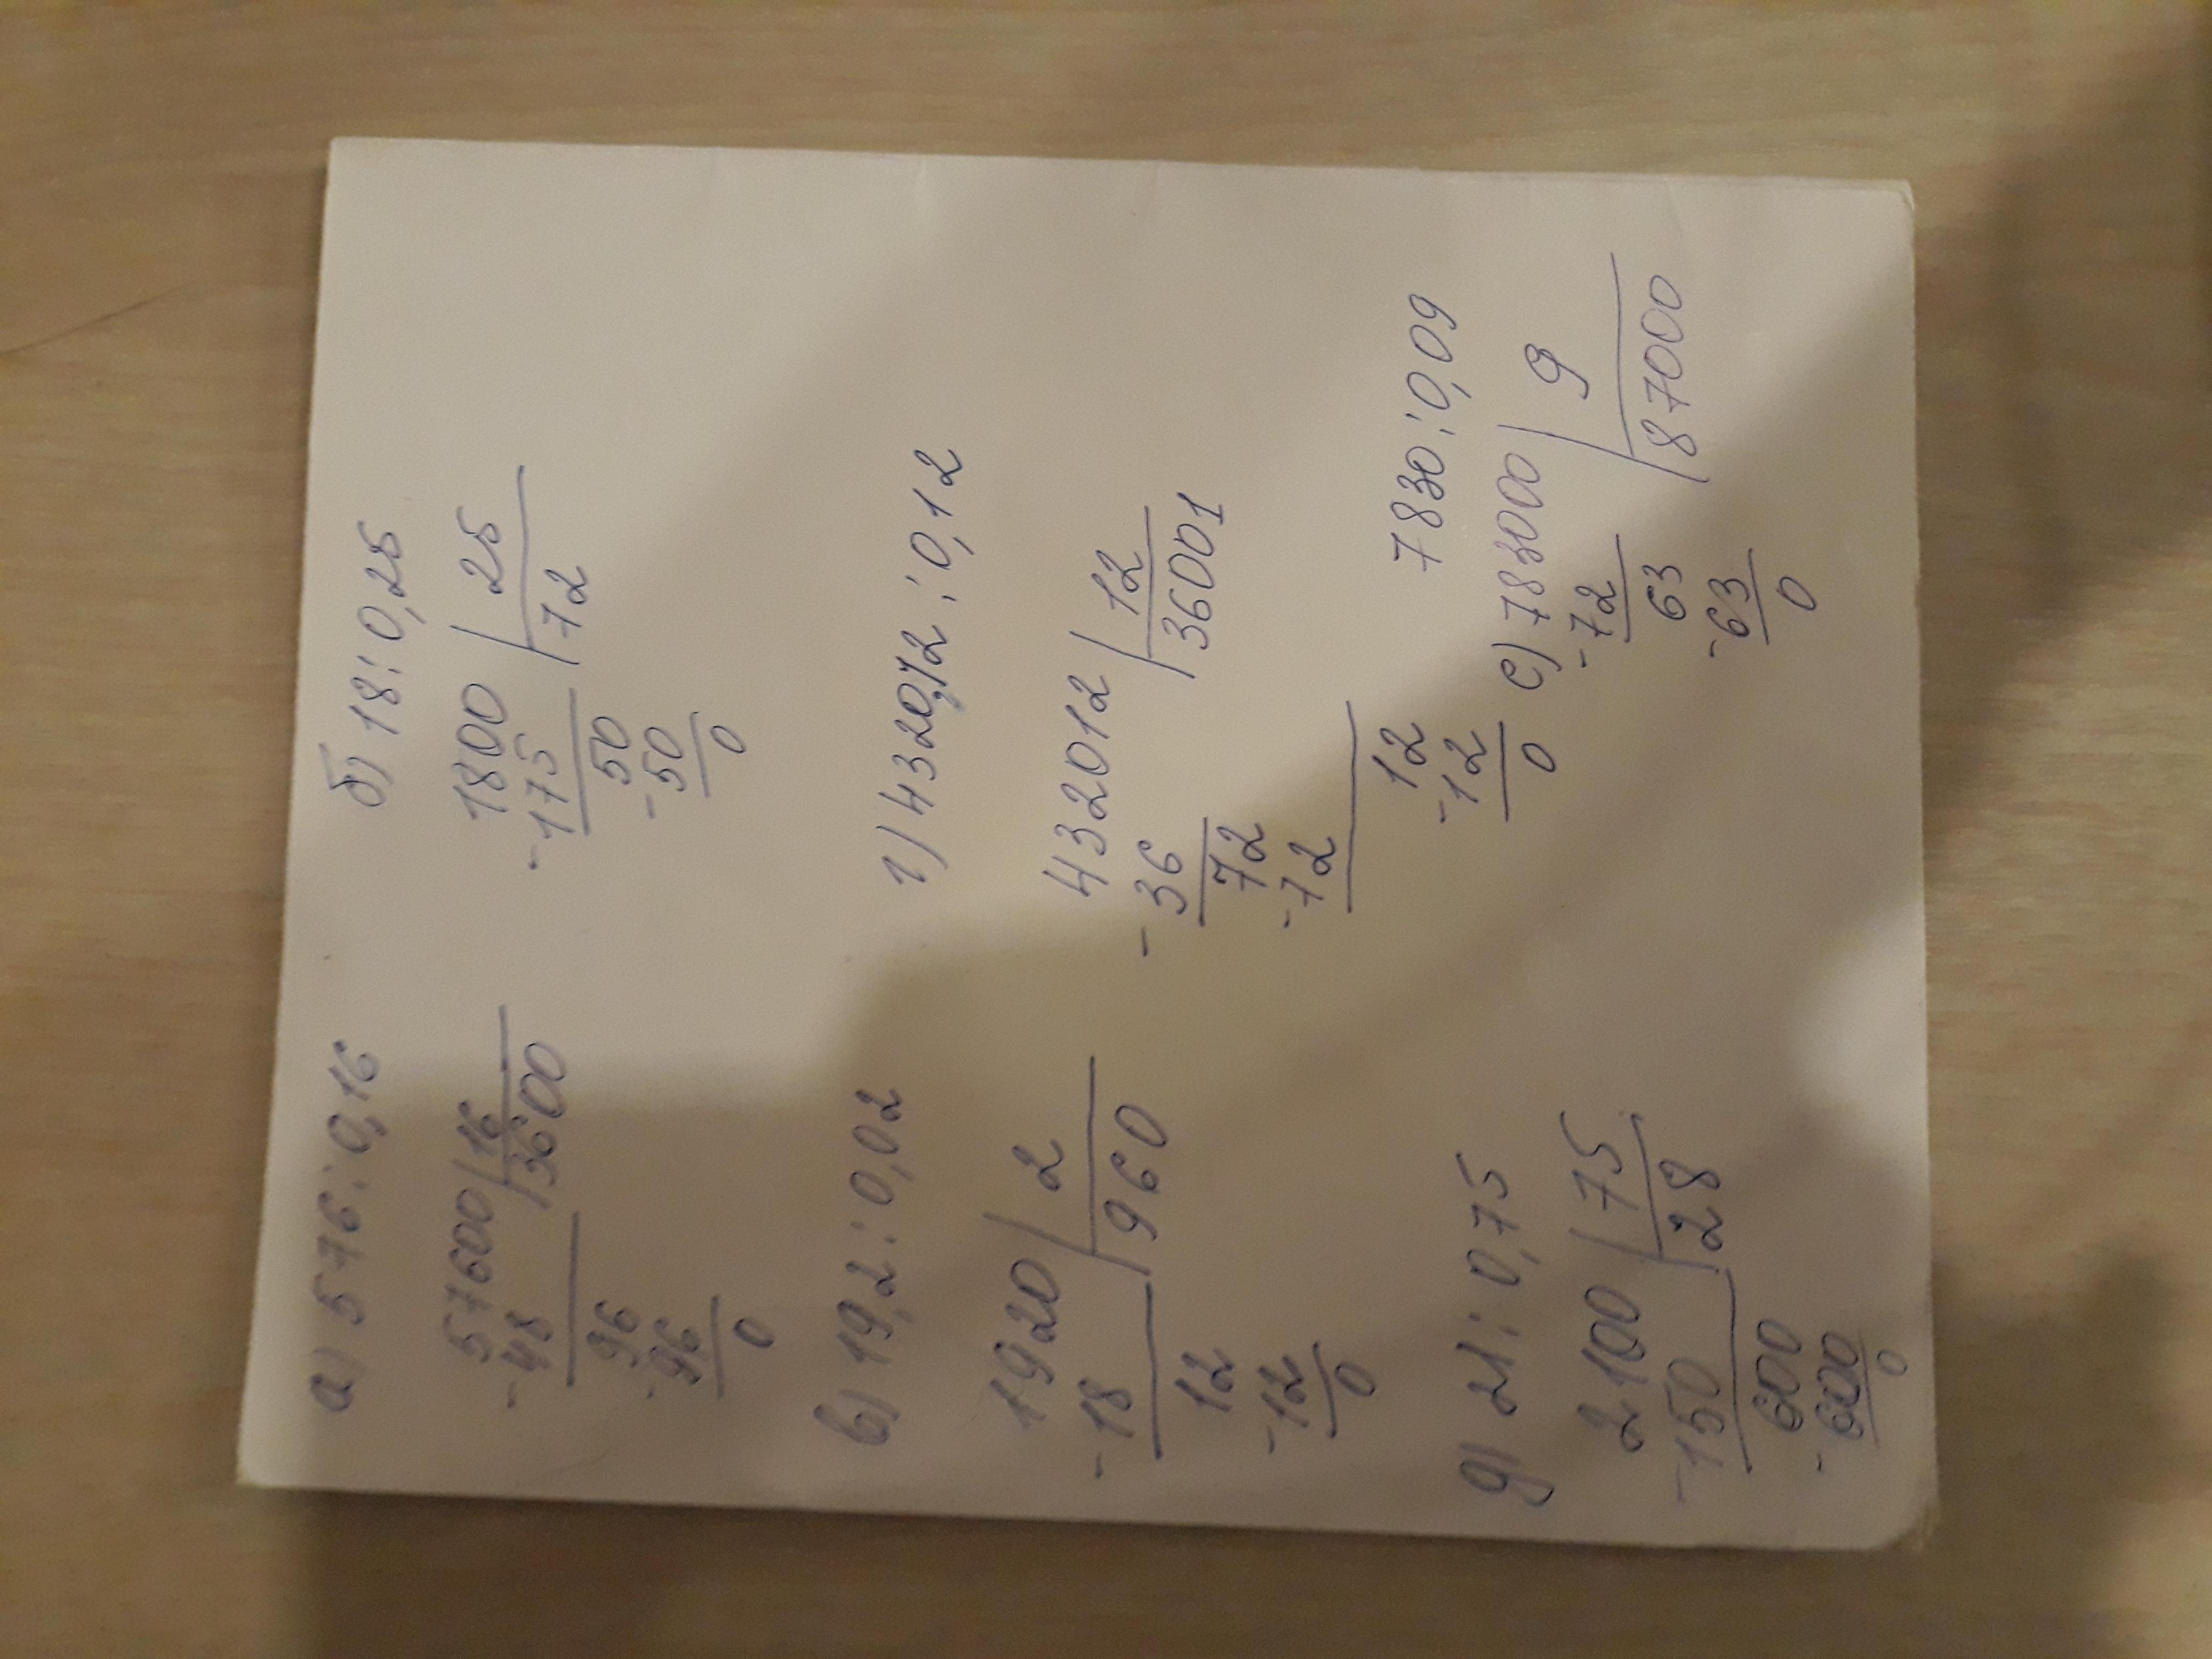 а) 576:0,16
57600 16
-48 3600
96
-96
0
б) 18:0,25
1800 25
-175 72
50
-50
0
в) 19,2:0,02
1920 2
-18 960
12
-12
0
г) 4320,12:0,12
432012 12
-36 36001
72
-72
12
-12
0
д) 21:0,75
2100 75
-150 28
600
-600
0
7830:0,09
е) 783000 9
-72 87000
63
-63
0